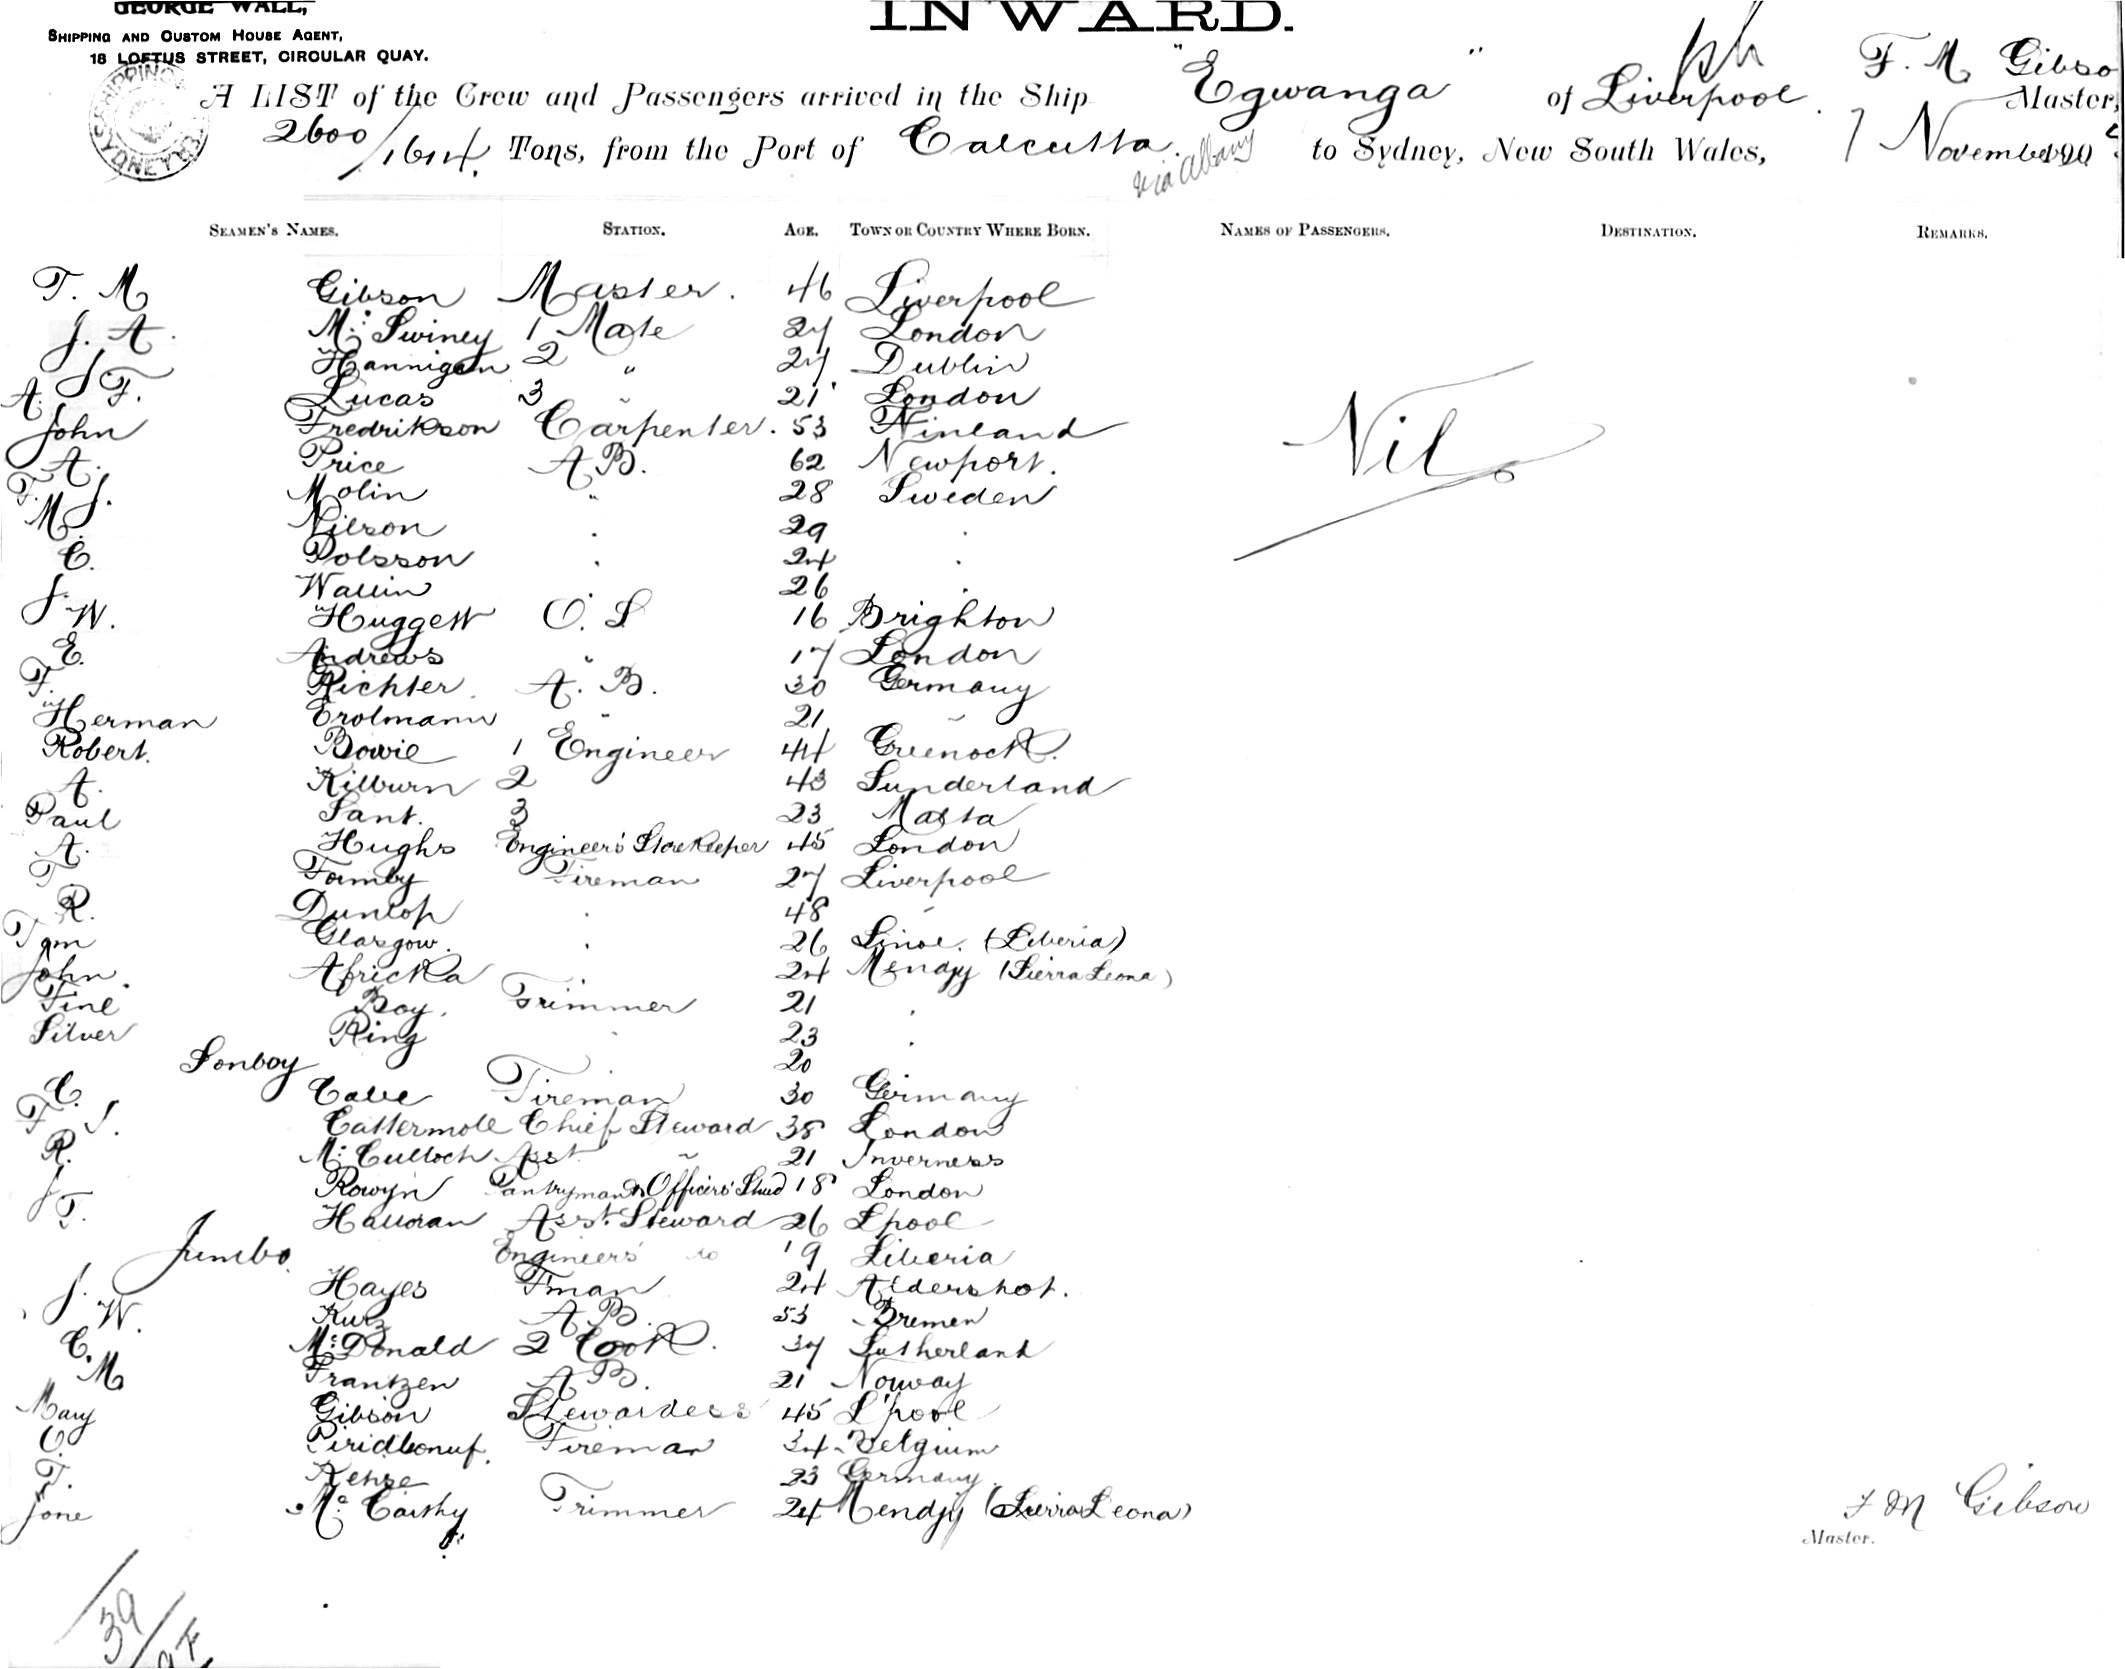 GEORGE WALL,
SHIPPING AND CUSTOM HOUSE AGENT,
18 LOFTUS STREET, CIRCULAR QUAY.
INWARD.
A LIST of the Crew and Passengers arrived in the Ship "Egwanga" of Liverpool. F. M. Gibso Master,
2600/1614. Tons, from the Port of Calcutta. via Albany to Sydney, New South Wales, 7 November 190
SEAMEN'S NAMES. STATION. AGE. TOWN OR COUNTRY WHERE BORN. NAMES OF PASSENGERS. DESTINATION. REMARKS.
F. M. Gibson Master. 46 Liverpool
J. A. Mc Swiney 1 Mate 27 London
J. Hannigan 2 " 27 Dublin
A. F. Lucas 3 " 21 London
John Fredrikson Carpenter. 53 Finland
A. Price A B. 62 Newport.
F. J. Molin " 28 Sweden
M. Nilson " 29 "
C. Polsson " 24 "
J. Wallin " 26 "
W. Huggett O. S 16 Brighton
E. Andrews " 17 London
F. Richter A. B. 30 Germany
Herman Erolmann " 21 "
Robert. Bowie 1 Engineer 44 Greenock.
A. Kilburn 2 43 Sunderland
Paul Sant. 3 23 Malta
A. Hughs Engineers' Storekeeper 45 London
T. Formby Fireman 27 Liverpool
R. Dunlop " 48 "
Tom Glasgow. " 26 Sinoe. (Liberia)
John Africka " 24 Mendjy (Sierra Leona)
Fine Boy. Trimmer 21 "
Silver King " 23 "
Sonboy 20
C. Calve Fireman 30 Germany
F. J. Cattermole Chief Steward 38 London
R. Mc Culloch Asst " 21 Inverness
J. Rowyn Pantryman & Officers' Stwd 18 London
T. Halloran Asst. Steward 26 L'pool
Jumbo. Engineers' do 19 Liberia
J. Hayes F'man 24 Aldershot.
W. Kurz A B. 53 Bremen
C. Mc Donald 2 Cook. 37 Sutherland
M. Frantzen A B. 21 Norway
Mary Gibson Stewardess 45 L'pool
O. Fireman 34 Belgium
T. 23 Germany.
Jone Mc Carthy Trimmer 24 Mendjy (Sierra Leona)
Nil
F M Gibson
Master.
39